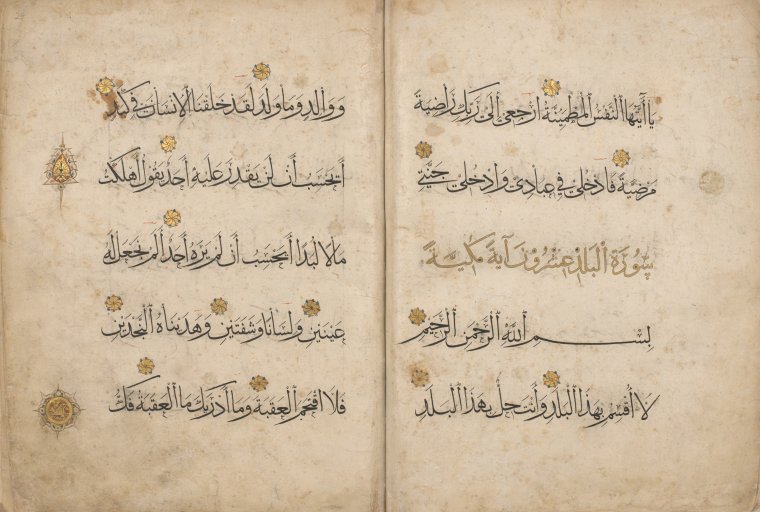 يا أيتها النفس المطمئنة ارجعي إلى ربك راضية
مرضية فادخلي في عبادي وادخلي جنتي
سورة البلد عشرون آية مكية
بسم الله الرحمن الرحيم
لا أقسم بهذا البلد وأنت حل بهذا البلد
ووالد وما ولد لقد خلقنا الإنسان في كبد
أيحسب أن لن يقدر عليه أحد يقول أهلكت
مالا لبدا أيحسب أن لم يره أحد ألم نجعل له
عينين ولسانا وشفتين وهديناه النجدين
فلا اقتحم العقبة وما أدريك ما العقبة فك